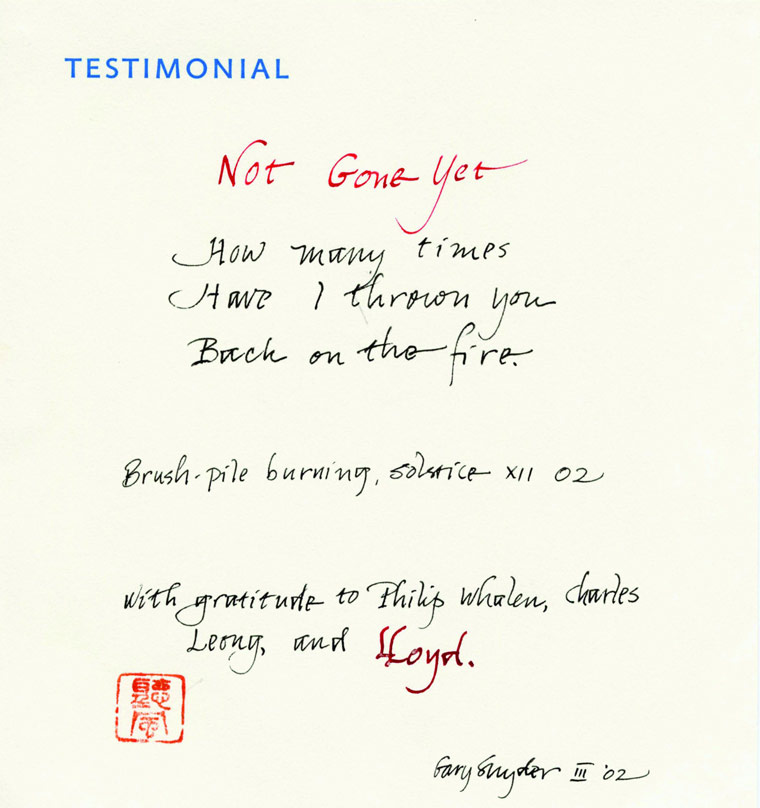 TESTIMONIAL
Not Gone Yet
How many times
Have I thrown you
Back on the fire.
Brush-pile burning, solstice XII 02
With gratitude to Philip Whalen, Charles
Leong, and Lloyd.
聽風
Gary Snyder III '02